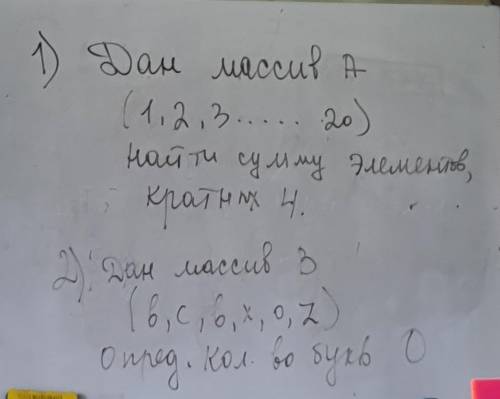 1) Дан массив А
(1, 2, 3 ..... 20)
найти сумму элементов,
кратных 4.
2) Дан массив В
(b, c, b, x, o, z)
опред. кол. во букв О